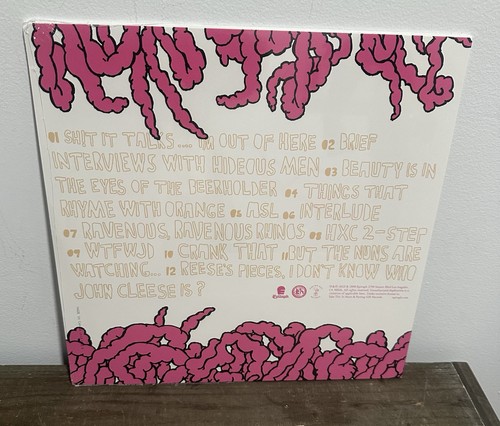 01 SHIT IT TALKS.... IM OUT OF HERE 02 BRIEF
INTERVIEWS WITH HIDEOUS MEN 03 BEAUTY IS IN
THE EYES OF THE BEERHOLDER 04 THINGS THAT
RHYME WITH ORANGE 05 ASL 06 INTERLUDE
07 RAVENOUS, RAVENOUS RHINOS 08 HXC 2-STEP
09 WTFWJD 10 CRANK THAT 11 BUT THE NUNS ARE
WATCHING... 12 REESE'S PIECES, I DON'T KNOW WHO
JOHN CLEESE IS?
Epitaph